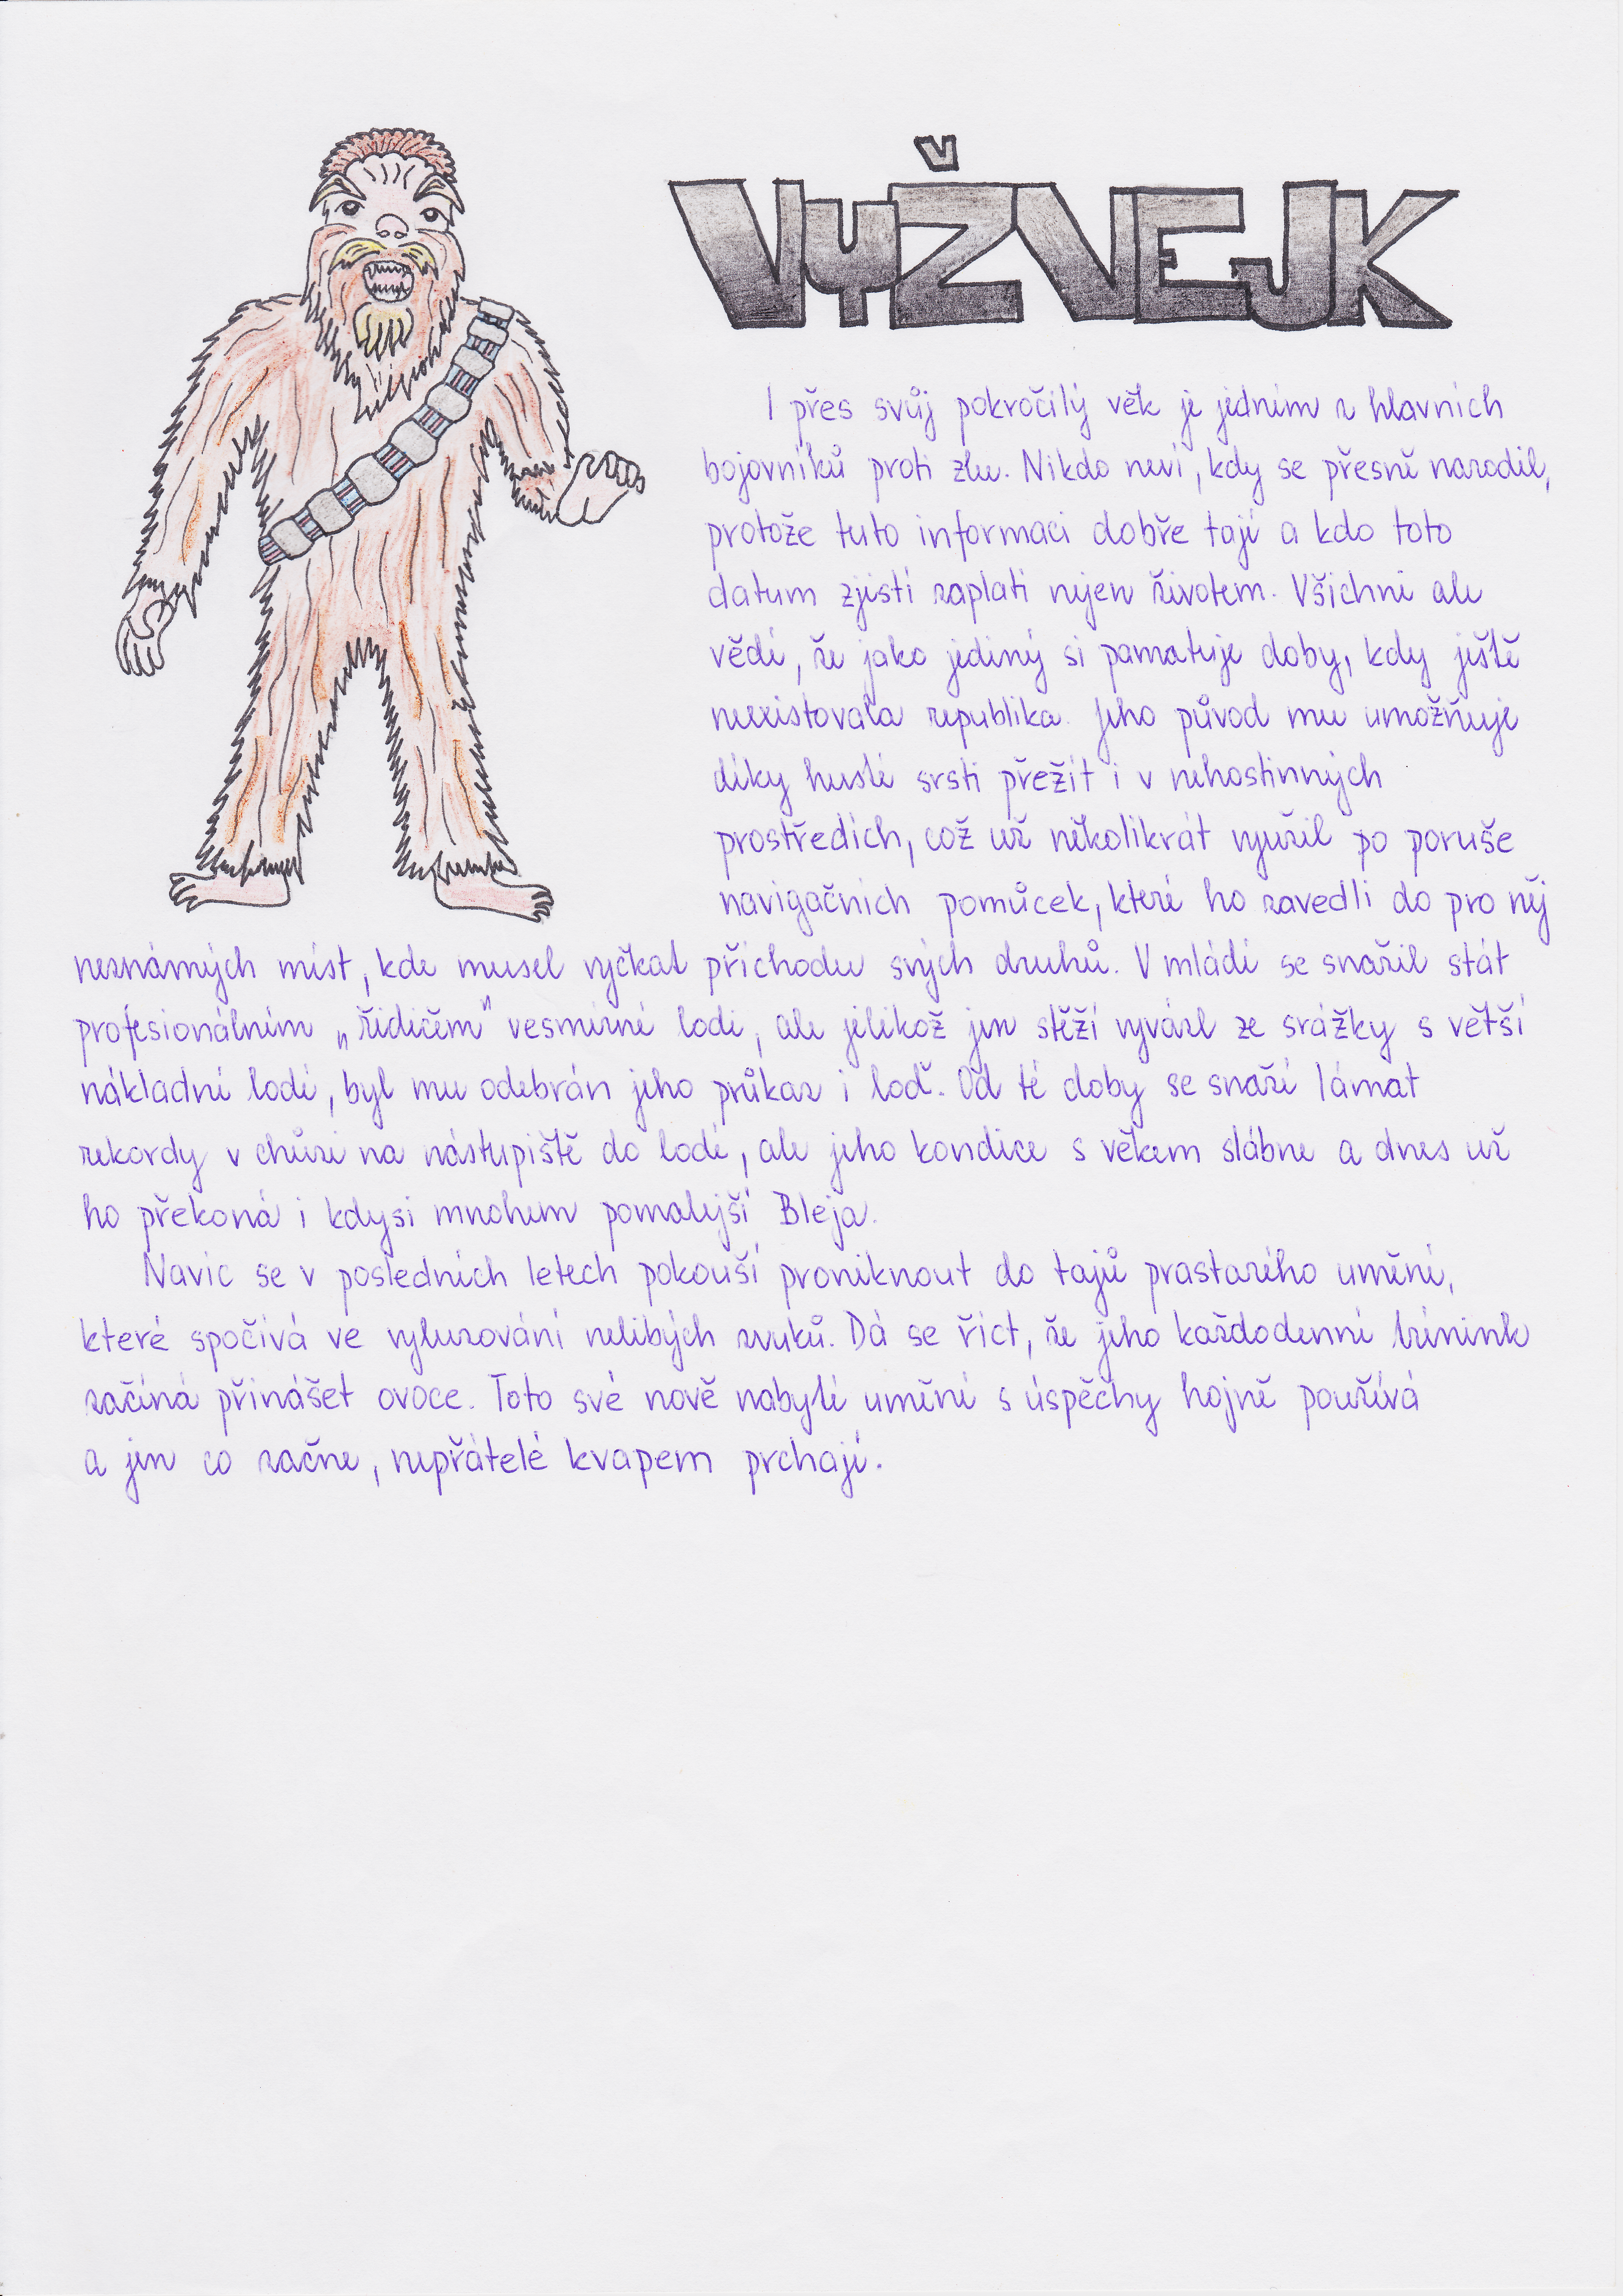 VYŽVEJK
I přes svůj pokročilý věk je jedním z hlavních
bojovníků proti zlu. Nikdo neví, kdy se přesně narodil,
protože tuto informaci dobře tají a kdo toto
datum zjistí zaplatí nejen životem. Všichni ale
vědí, že jako jediný si pamatuje doby, kdy ještě
neexistovala republika. Jeho původ mu umožňuje
díky husté srsti přežít i v nehostinných
prostředích, což už několikrát využil po poruše
navigačních pomůcek, které ho zavedli do pro něj
neznámých míst, kde musel vyčkat příchodu svých druhů. V mládí se snažil stát
profesionálním „řidičem" vesmírné lodi, ale jelikož jen stěží vyvázl ze srážky s větší
nákladní lodí, byl mu odebrán jeho průkaz i loď. Od té doby se snaží lámat
rekordy v chůzi na nástupiště do lodí, ale jeho kondice s věkem slábne a dnes už
ho překoná i kdysi mnohem pomalejší Bleja.
Navíc se v posledních letech pokouší proniknout do tajů prastarého umění,
které spočívá ve vyluzování nelibých zvuků. Dá se říct, že jeho každodenní trénink
začíná přinášet ovoce. Toto své nově nabylé umění s úspěchy hojně používá
a jen co začne, nepřátelé kvapem prchají.